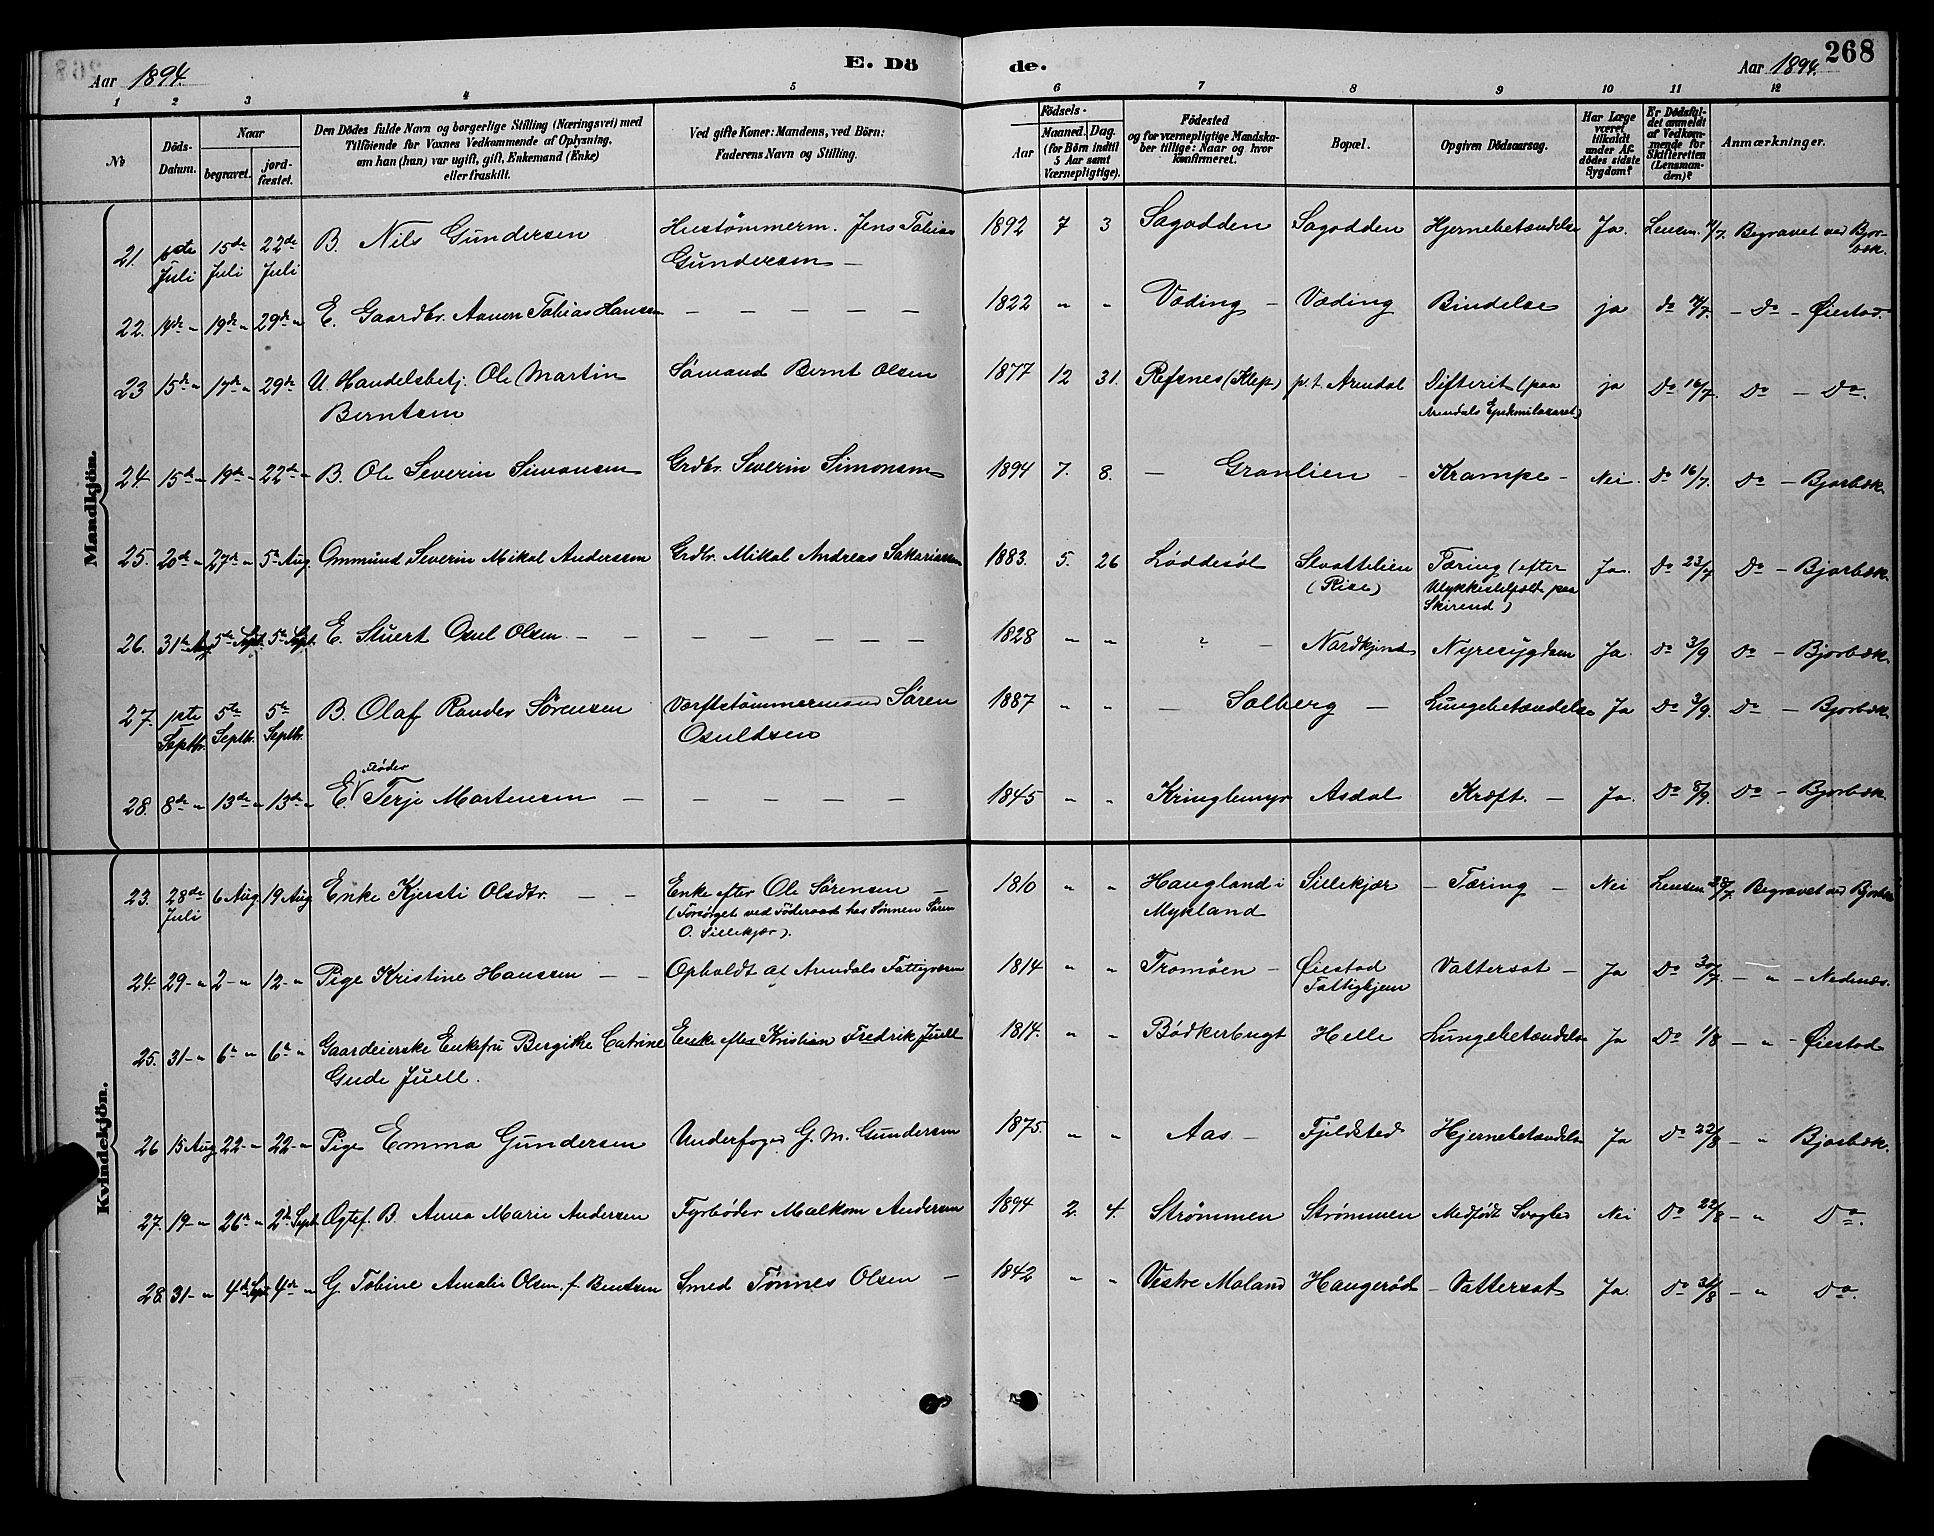 268
Aar 1894. E. Dö de. Aar 1894.
1 2 3 4 5 6 7 8 9 10 11 12
No
Döds-Datum.
Naar
begravet.
jordfæstet.
Den Dödes fulde Navn og borgerlige Stilling (Næringsvei) med
Tilföiende for Voxnes Vedkommende af Oplysning,
om han (hun) var ugift, gift, Enkemand (Enke)
eller fraskilt.
Ved gifte Koner: Mandens, ved Börn:
Faderens Navn og Stilling.
Födsels-
Aar
Maaned. Dag.
(for Börn indtil
5 Aar samt
Værnepligtige).
Födested
og for værnepligtige Mandskaber
tillige: Naar og hvor
konfirmeret.
Bopæl.
Opgiven Dödsaarsag.
Har Læge
været
tilkaldt
under Afdödes
sidste
Sygdom?
Er Dödsfaldet
anmeldt
af Vedkommende
for
Skifteretten
(Lensmanden)?
Anmærkninger.
Mandkjön.
21. 1ste Juli 15de Juli 22de Juli B. Nils Gundersen Hustømmerm. Jens Tobias Gundersen — 1892 7 3 Sagodden Sagodden Hjernebetændelse Ja. Lensm. /7. Begravet ved Bjorbæk.
22. " 19de " 29de " E. Gaardbr. Aanen Tobias Hansen — — — — — 1822 " " Vading — Vading Bindelse ja do /7. — Do — Øiestad.
23 15de " 17de " 29de U. Handelsbetj. Ole Martin Berntsen Sømand Bernt Olsen 1877 12 31. Refsnes (Klep) p.t. Arendal Difterit (paa Arendals Epidemilazaret) ja Do 16/7. Do — Do.
24. 15de " 19de " 22de " B. Ole Severin Simonsen Grdbr. Severin Simonsen 1894 7. 8. — Granlien — Krampe — Nei. Do 16/7. Do — Bjorbæk.
25. 20de " 27de " 5te Aug Ommund Severin Mikal Anderssen Grdbr. Mikal Andreas Sakariassen 1883. 5. 26 Løddesøl Slottelien (Rise) Tæring (efter Ulykkestilfælde paa Skirend) Ja. Do 23/7 Do — Bjorbæk.
26. 31te Aug 5te Sept. 5te Sept. E. Stuert Osul Olsen. — — — — — — — 1828 " " ? — Nordkjend Nyresygdom Ja. Do 3/9 Do — Bjorbæk.
27. 1ste Septbr. 5te Septbr. 5te Septbr. B. Olaf Rander Sørensen Værftstømmermand Søren Osuldsen 1887 " " — Solberg — Lungebetændelse Ja Do 3/9. Do — Bjorbæk
28. 8de " 13de " 13de " E. Fløder Terje Mortensen — — — — — — 1845 " " Kringlemyr Asdal Kræft. — Ja. Do 8/9. Do — Bjorbæk.
Kvindekjön.
23. 28de Juli 6 Aug. 19 Aug Enke Kjersti Olsdtr. — — Enke efter Ole Sørensen — (Forsørget ved Føderaad hos Sønnen Søren O. Sillekjær). 1810 " " Haugland i Mykland Sillekjær — Tæring — Nei Lensm. 28/7. Begravet ved Bjorbæk
24. 29 — " 2 — " 12 — " Pige Kristine Hanssen — — Opholdt af Arendals Fattigvæsen 1814 " " Tromøen — Øiestad Fattighjem Vattersot — Ja Do 30/7. — " — Nedenæs.
25. 31 — " 6te " 6te " Gaardeierske Enkefru Bergitte Catrine Gude Juell. Enke efter Kristian Fredrik Juell 1814. " " Bødkerbugt Helle Lungebetændelse Ja Do 1/8 — " — Øiestad
26 15 Aug 22 — " 22 — " Pige Emma Gundersen Underfoged G. M. Gundersen 1875 " " Aas — Fjeldsted Hjernebetændelse Ja Do 22/8 — " Bjorbæk.
27. 19 — " 26de " 2de Sept. Ogtef. B. Anna Marie Andersen Fyrbøder Malkom Andersen 1894 2. 4. Strømmen Strømmen Medfødt Svaghed Nei Do 22/8 — " Do.
28. 31 — " 4de Sept 4de " G. Tobine Amalie Olsen, f. Bentsen Smed Tønnes Olsen — 1842 " " Vestre Moland Haugerød — Vattersot Ja. Do 31/8 — " Do.